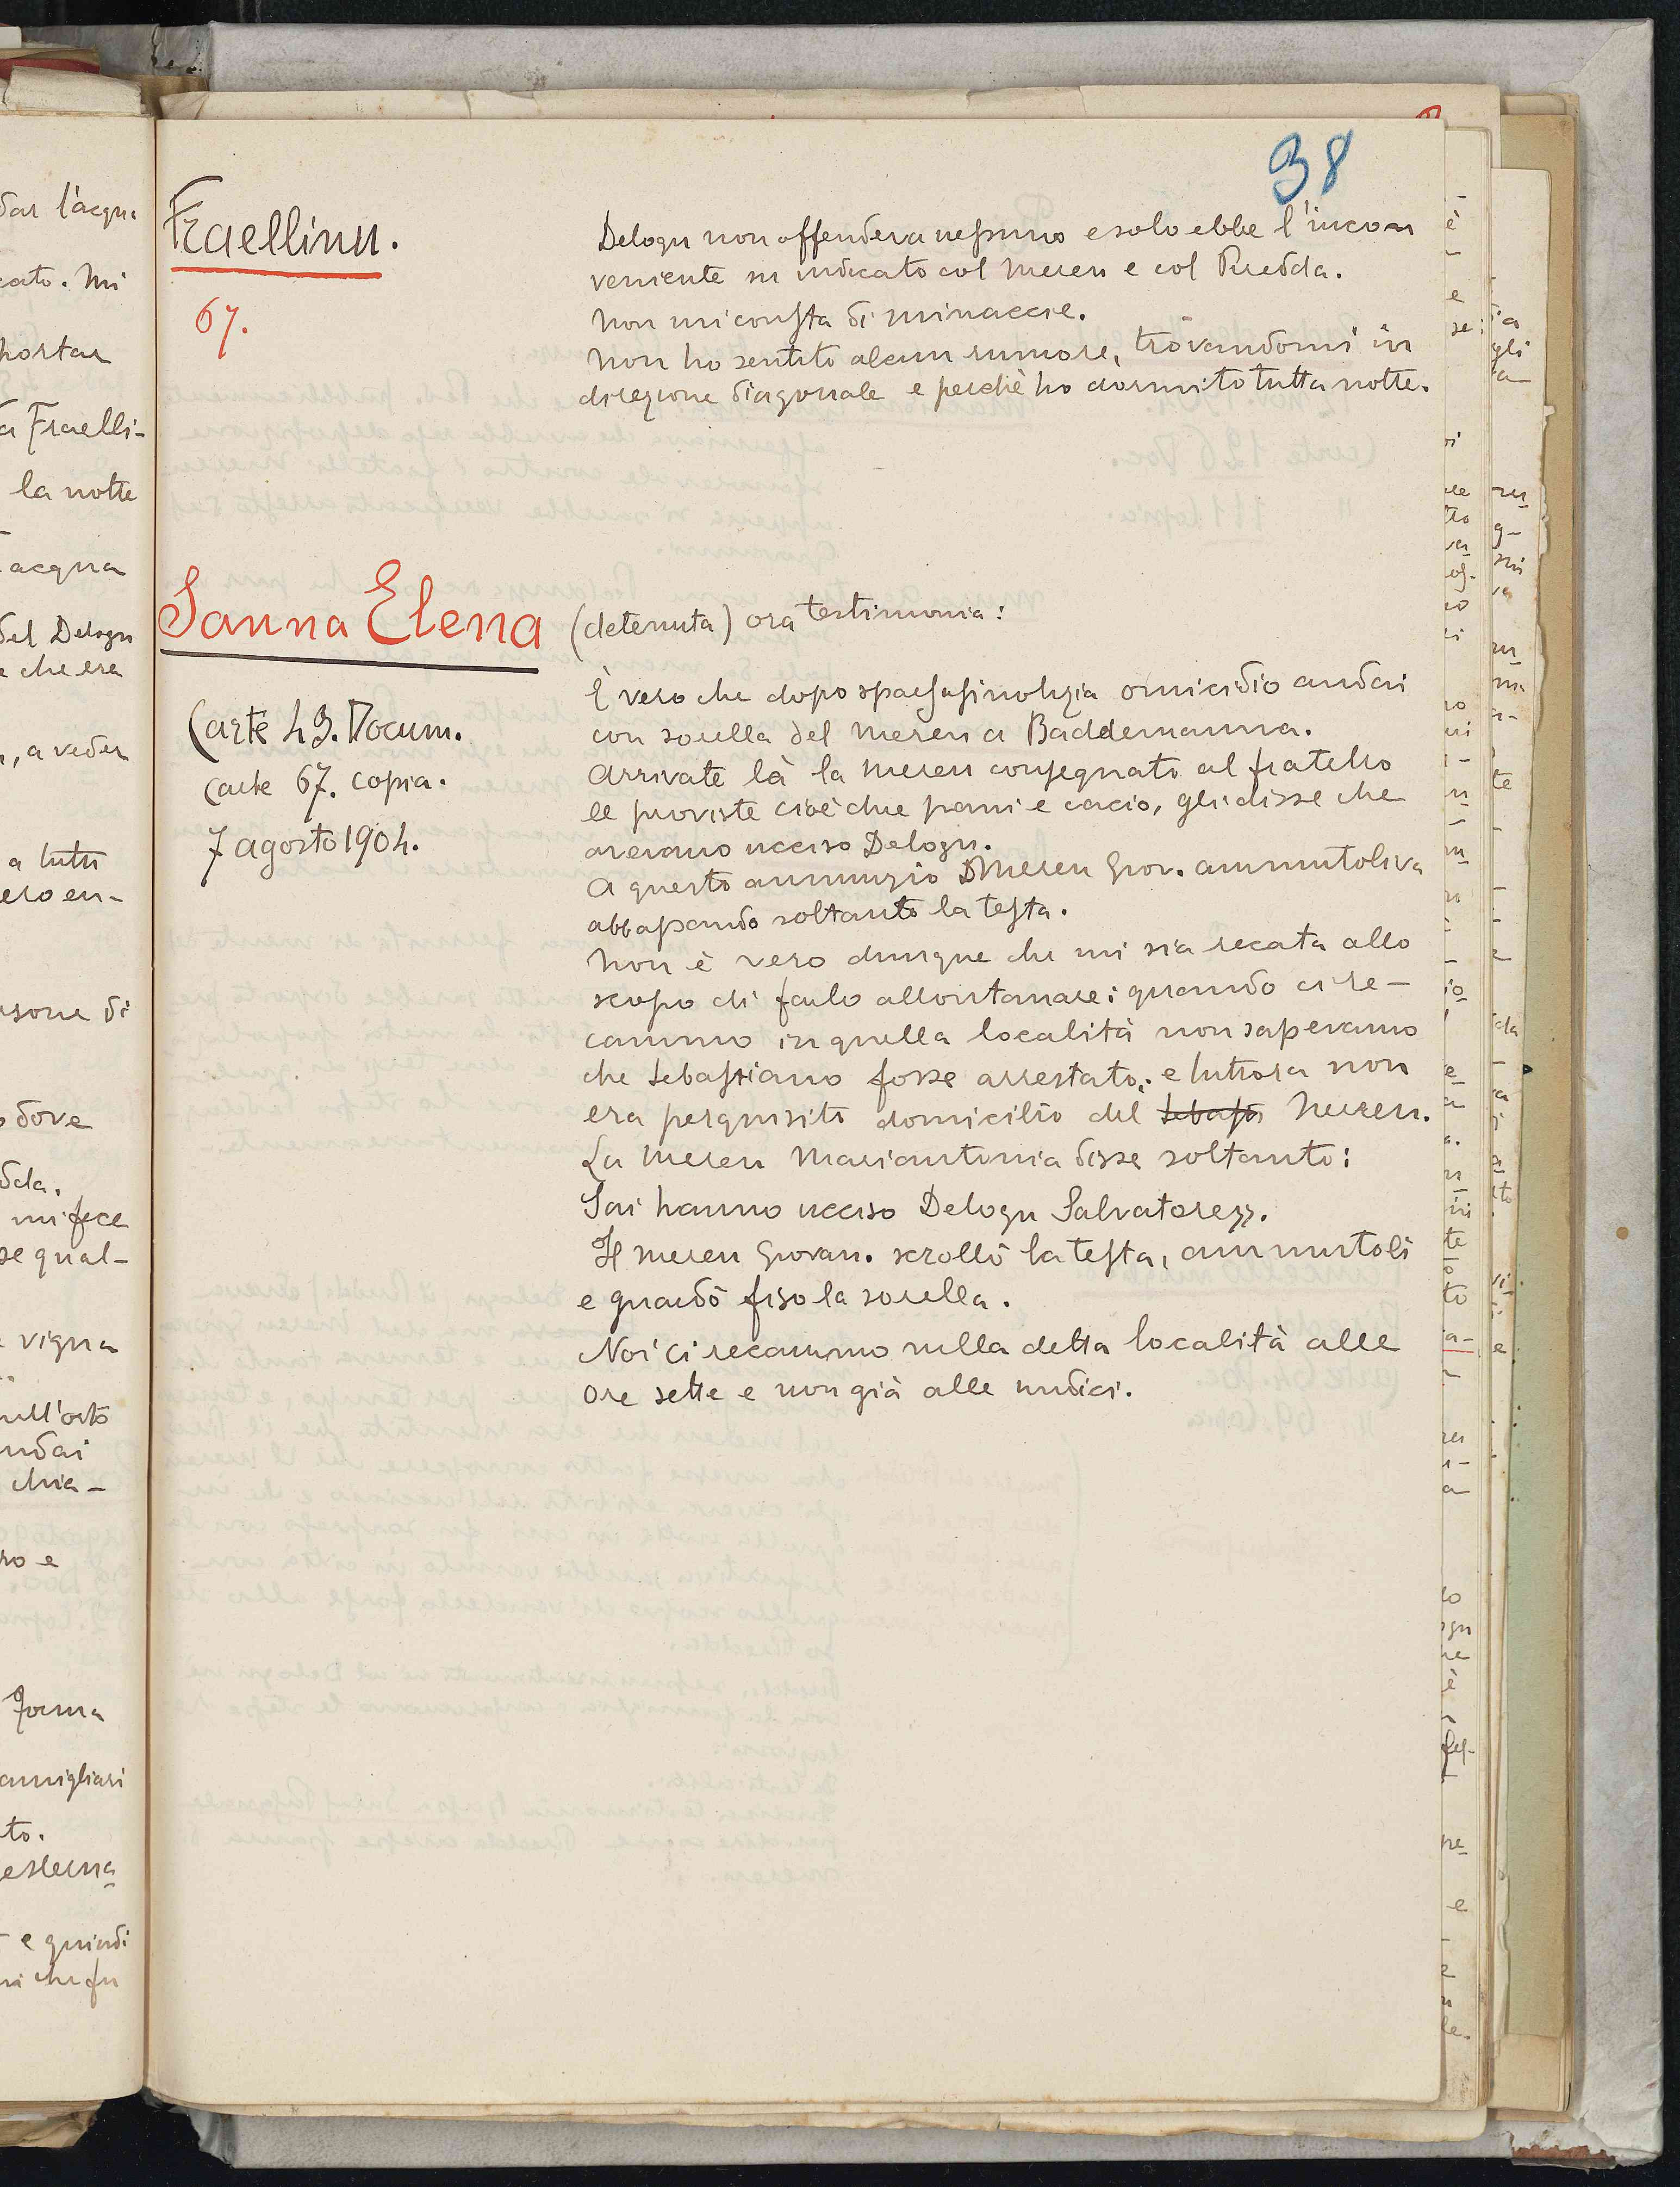 38
Fraellinu.
67.
Delogu non offendeva nessuno e solo ebbe l'incon
veniente su indicato col Mereu e col Puedda.
Non mi consta di minaccie.
Non ho sentito alcun rumore, trovandomi in
direzione diagonale e perchè ho dormito tutta notte.
Sanna Elena (detenuta) ora testimonia:
Carte 43. Docum.
Carte 67. copia.
7 agosto 1904.
È vero che dopo omicidio andai
con sorella del Mereu a Baddemanna.
Arrivate là la Mereu consegnato al fratello
le proviste cioè due pani e cacio, gli disse che
avevano ucciso Delogu.
A questo annunzio Mereu Giov. ammutoliva
abbassando soltanto la testa.
Non è vero dunque che mi sia recata allo
scopo di farlo allontanare: quando ci re-
cammo in quella località non sapevamo
che Sebastiano fosse arrestato; e tuttora non
era perquisito domicilio del Sebast Mereu.
La Mereu Mariantonia disse soltanto:
Sai hanno ucciso Delogu Salvatore».
Il Mereu Giovan. scrollò la testa, ammutolì
e guardò fiso la sorella.
Noi ci recammo nella detta località alle
ore sette e non già alle undici.